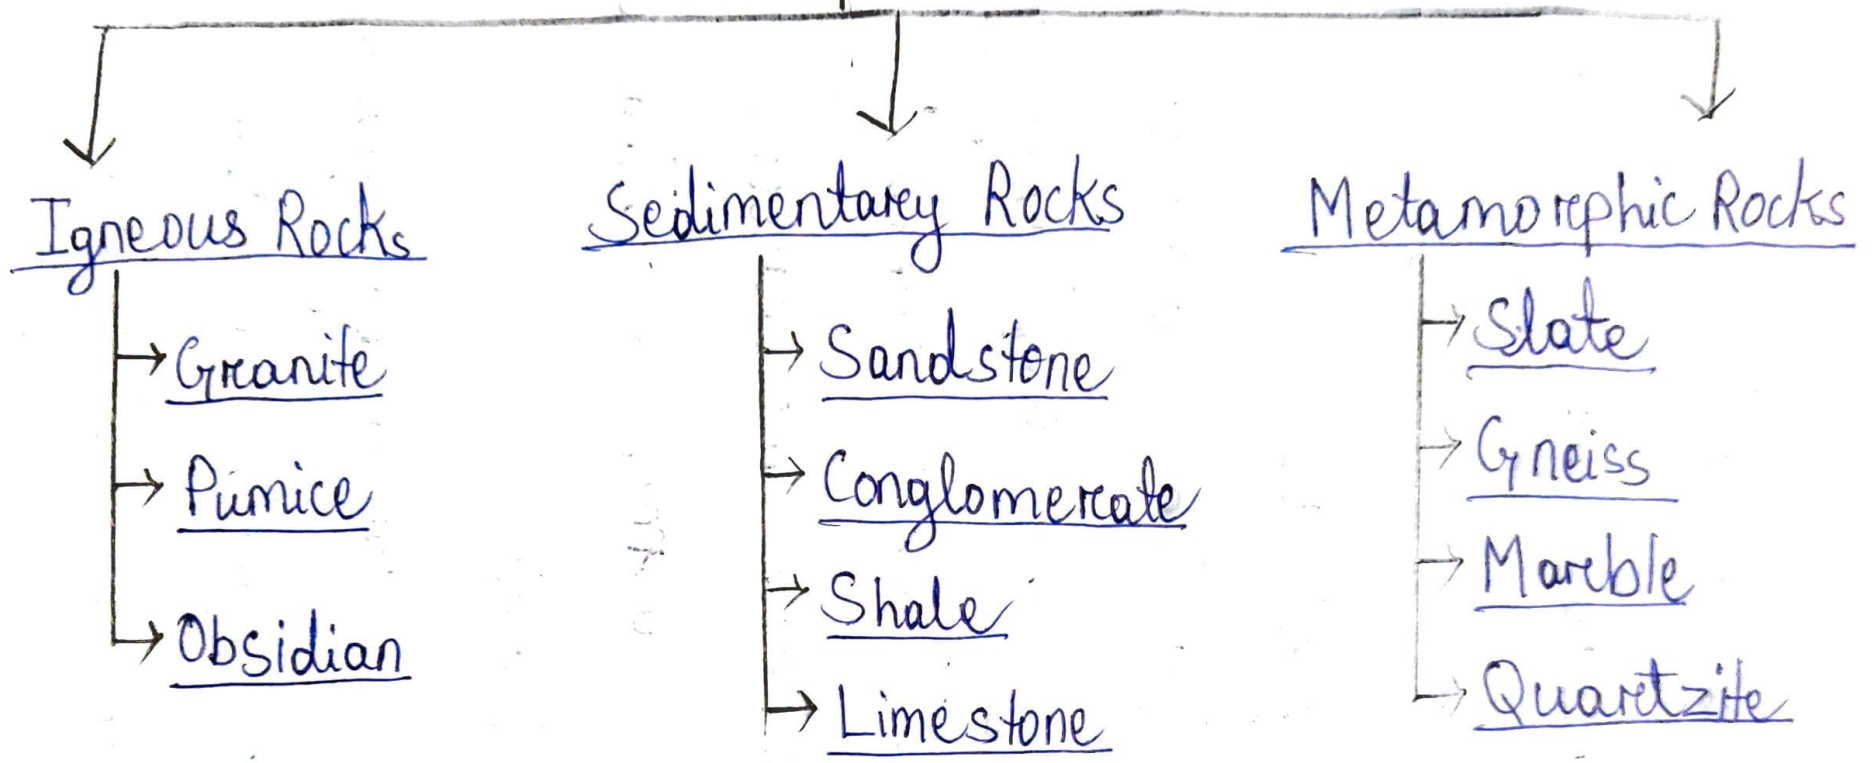 Igneous Rocks
Granite
Pumice
Obsidian
Sedimentary Rocks
Sandstone
Conglomerate
Shale
Limestone
Metamorphic Rocks
Slate
Gneiss
Marble
Quartzite